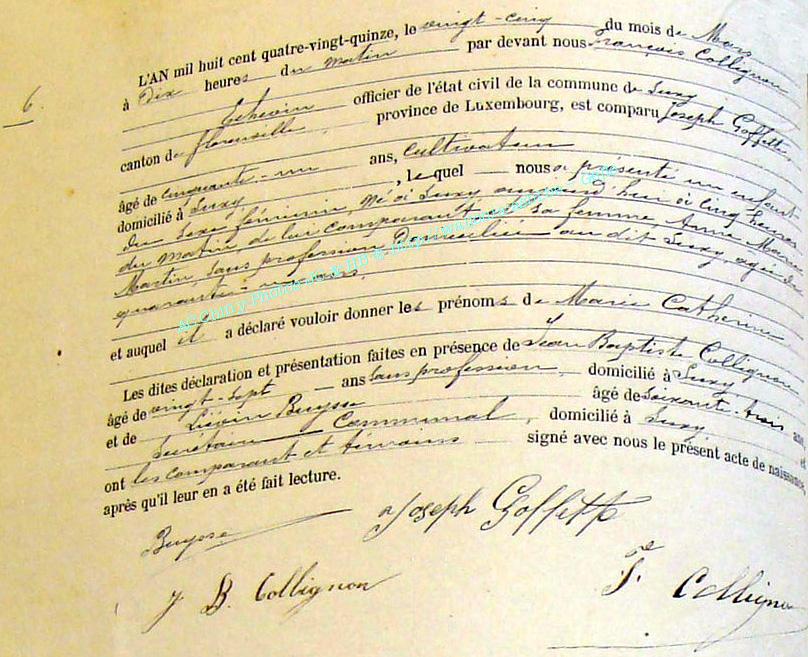 6.
L'AN mil huit cent quatre-vingt-quinze, le vingt-cinq du mois de Mars
à Dix heures du matin par devant nous François Collignon
Echevin officier de l'état civil de la commune de Suxy
canton de florenville, province de Luxembourg, est comparu Joseph Goffette
âgé de cinquante-un ans, Cultivateur
domicilié à Suxy, lequel nous a présenté un enfant
du sexe féminin, né à Suxy aujourd'hui à cinq heures
du matin, de lui comparant et de sa femme Anne Marie
Martin, sans profession Domiciliée au dit Suxy, agée de
quarante un ans.
et auquel il a déclaré vouloir donner les prénoms de Marie Catherine
Les dites déclaration et présentation faites en présence de Jean Baptiste Collignon
âgé de vingt-sept ans sans profession, domicilié à Suxy
et de Liévin Buysse âgé de soixante-trois ans et
Secrétaire Communal, domicilié à Suxy
ont les comparant et témoins signé avec nous le présent acte de naissance,
après qu'il leur en a été fait lecture.
Buysse Joseph Goffette
J B. Collignon F. Collignon